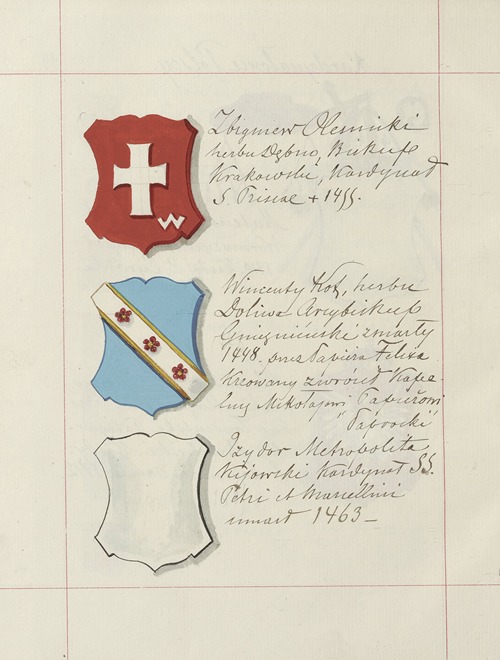 Zbigniew Olesnicki
herbu Dębno, Biskup
Krakowski, Kardynał
S. Priscae + 1455.
W
Wincenty Kot, herbu
Doliwa Arcybiskup
Gnieźnieński zmarły
1448. przez Papieża Felixa
kreowany zwrócił "Kape-
lusz Mikołajowi Papieżowi
"
Izydor Metropolita
Kijowski Kardynał SS.
Petri et Marcellini
umarł 1463 _